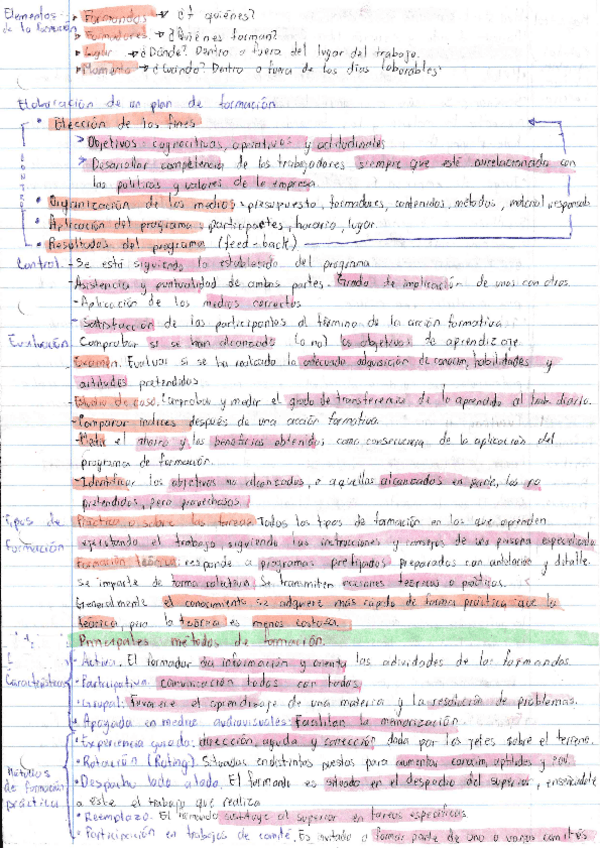 Elementos de la formación
Formandos → ¿A quiénes?
Formadores. → ¿Quiénes forman?
Lugar → ¿Dónde? Dentro o fuera del lugar del trabajo.
Momento → ¿Cuándo? Dentro o fuera de los días laborables.
Elaboración de un plan de formación
CONTROL
• Elección de los fines
> Objetivos: cognoscitivos, operativos y actitudinales
> Desarrollar competencia de los trabajadores siempre que esté interrelacionada con
las políticas y valores de la empresa.
• Organización de los medios: presupuesto, formadores, contenidos, métodos, material responsab
• Aplicación del programa: participantes, horario, lugar.
• Resultados del programa (feed-back)
Control
- Se está siguiendo lo establecido del programa
- Asistencia y puntualidad de ambas partes. Grado de implicación de unos con otros.
- Aplicación de los medios correctos
Evaluación
- Satisfacción de los participantes al término de la acción formativa.
- Comprobar si se han alcanzado (o no) los objetivos de aprendizaje.
- Examen. Evaluar si se ha realizado la adecuada adquisición de conocim, habilidades y
actitudes pretendidos.
- Estudio de caso. Comprobar y medir el grado de transferencia de lo aprendido al trab. diario.
- Comparar índices después de una acción formativa.
- Medir el ahorro y los beneficios obtenidos como consecuencia de la aplicación del
programa de formación.
- Identificar los objetivos no alcanzados, o aquellos alcanzados en parte, los no
pretendidos, pero provechosos.
Tipos de formación
Práctica o sobre las tareas: Todos los tipos de formación en los que aprenden
ejecutando el trabajo, siguiendo las instrucciones y consejos de una persona especializada.
Formación teórica: responde a programas prefijados preparados con antelación y detalle.
Se imparte de forma colectiva. Se transmiten nociones teóricas o prácticas.
Generalmente el conocimiento se adquiere más rápido de forma práctica que la
teórica, pero la teórica es menos costosa.
Principales métodos de formación.
Características
- Activa. El formador da información y orienta las actividades de los formandos.
- Participativa: comunicación todos con todos.
- Grupal: Favorece el aprendizaje de una materia y la resolución de problemas.
• Apoyada en medios audiovisuales: Facilitan la memorización.
Métodos de formación práctica
• Experiencia guiada: dirección, ayuda y corrección dada por los jefes sobre el terreno.
• Rotación (Rating). Situados en distintos puestos para aumentar conocim, aptitudes y
• Despacho lado a lado. El formando es situado en el despacho del superior, enseñándole
a este el trabajo que realiza
• Reemplazo. El formando sustituye al superior en tareas específicas.
• Participación en trabajos de comité. Es invitado a formar parte de uno o varios comités